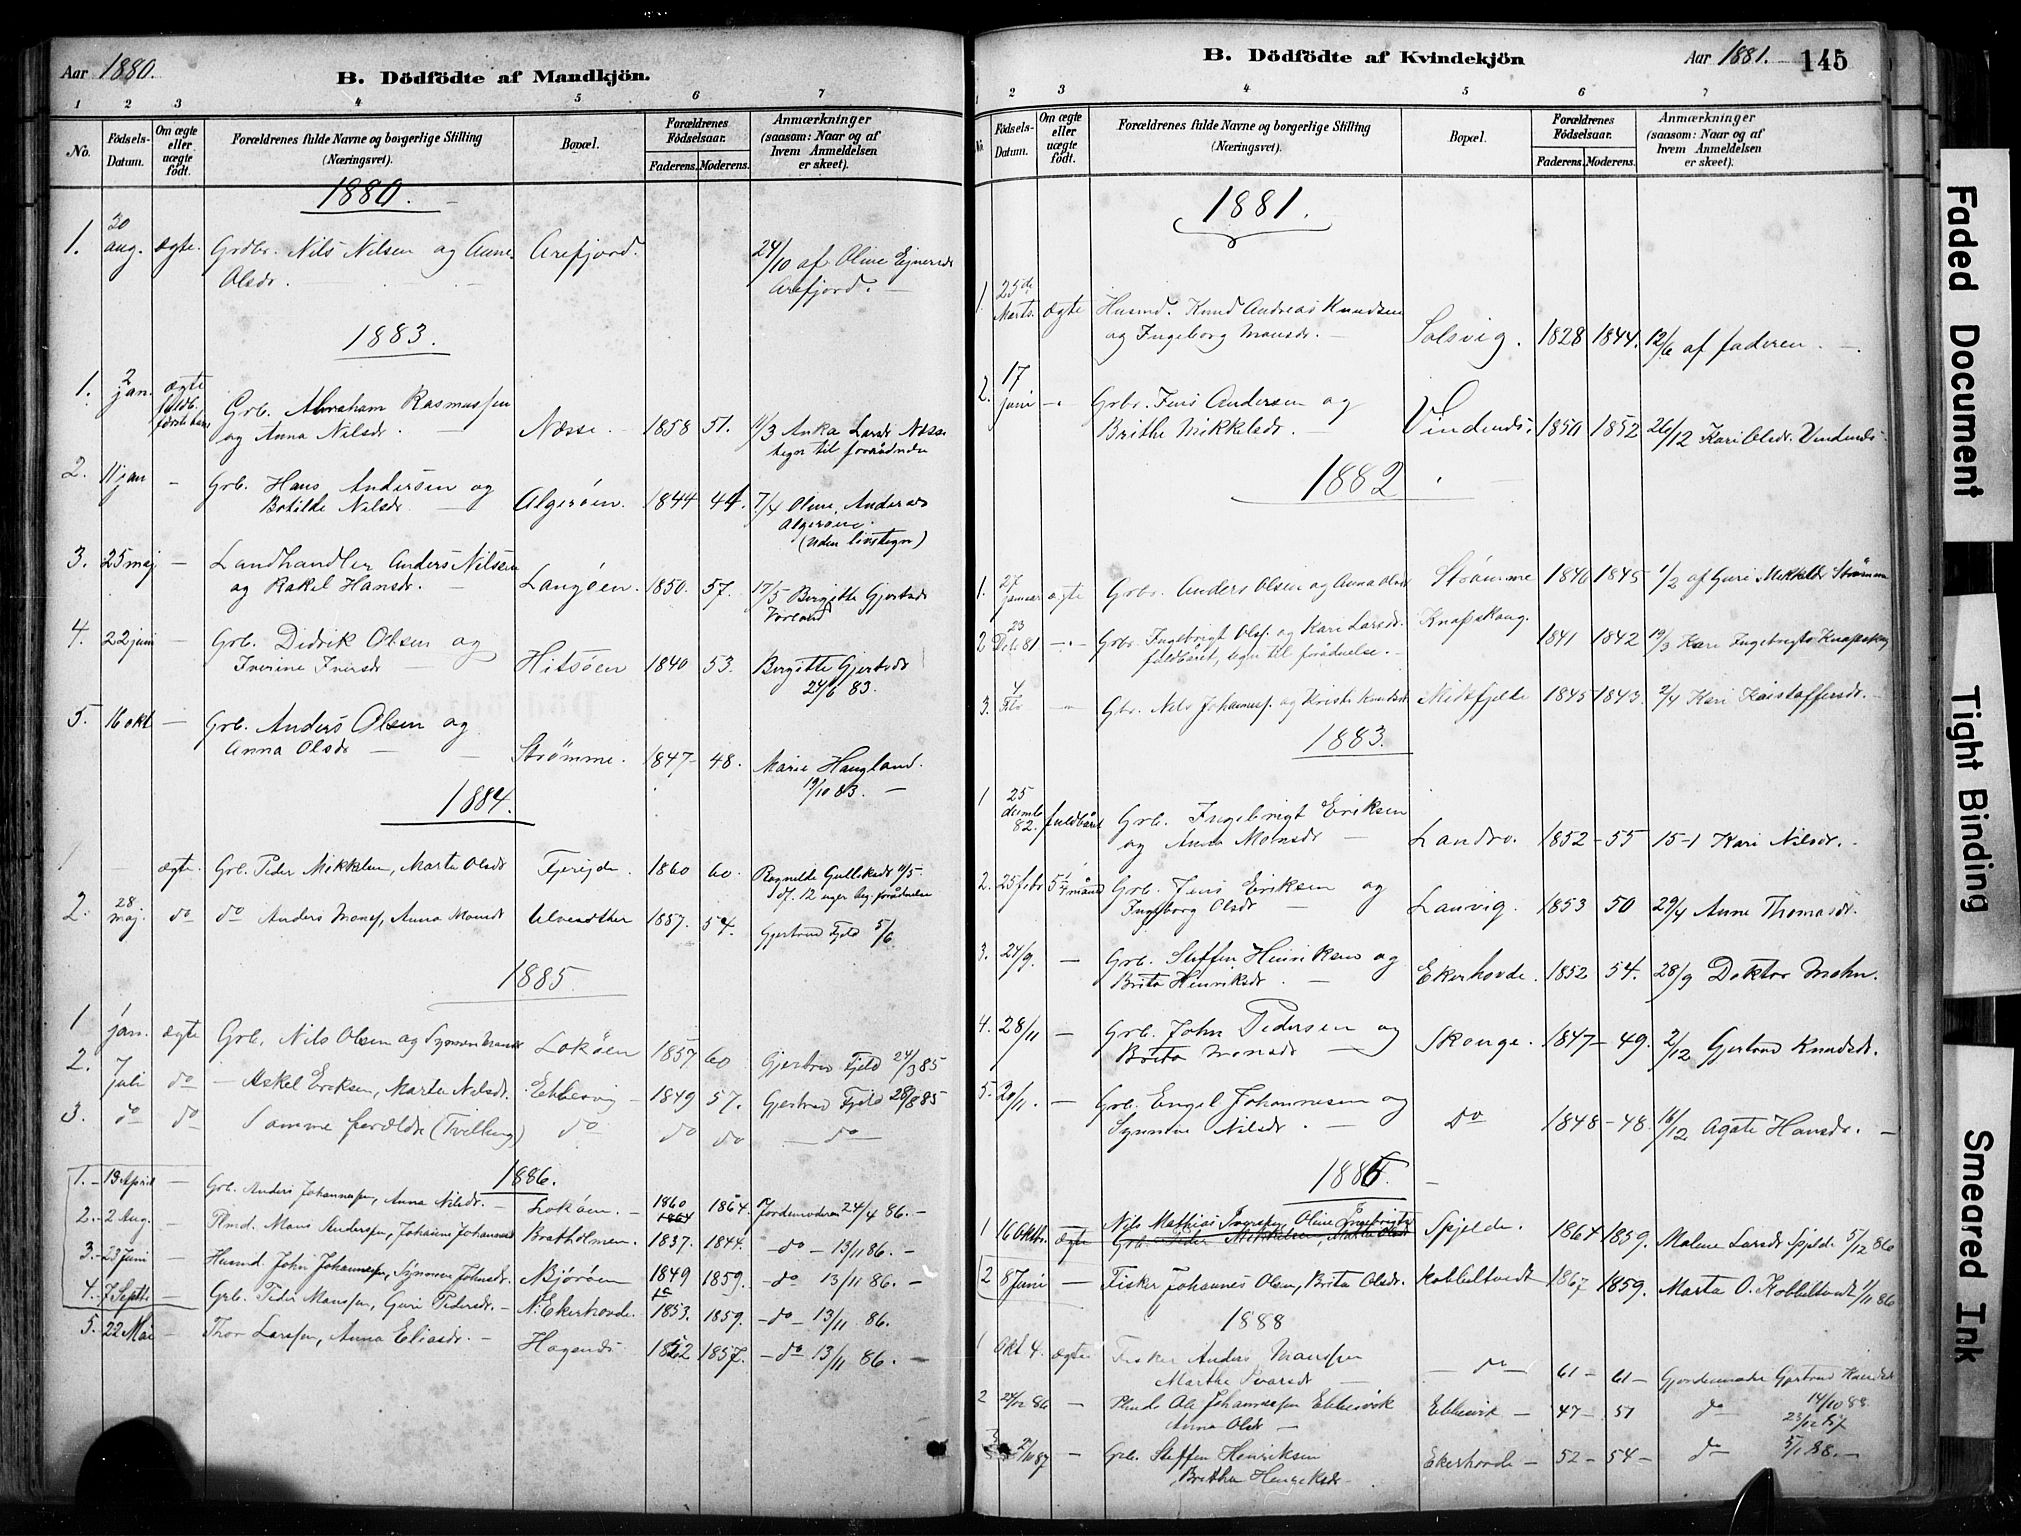 Aar 1880.
B. Dödfödte af Mandkjön.
1 2 3 4 5 6 7
No.
Fødsels-Datum.
Om ægte eller uægte født.
Forældrenes fulde Navne og borgerlige Stilling (Næringsvei).
Bopæl.
Forældrenes Fødselsaar.
Faderens. Moderens.
Anmærkninger (saasom: Naar og af hvem Anmeldelsen er skeet).
1880.
1. 20 aug. ægte. Grdbr. Nils Nilsen og Anne Arefjord. 24/10 af Oline Ejnersdr
Olsdr. Arefjord.
1883.
1. 2 jan. ægte Grb. Abraham Rasmussen
og Anna Nilsdr. Næsse. 1858 51. 11/3 Anka Larsdr Næsse
tegn til forrådnelse
2. 11 jan - Grb. Hans Andersen og
Botilde Nilsdr. Algerøen. 1844 44 7/4 Oline Andersdr
Algerøen.
(uden livstegn)
3. 25 maj - Landhandler Anders Nilsen
og Rakel Hansdr. Langøen. 1850. 57. 17/5 Bergitte Gjertsdr
4. 22 juni - Grb. Didrik Olsen og
Iverine Iversdr Hitsøen 1840 53. Bergitte Gjertsdr
24/6 83.
5. 16 okt - Grb. Anders Olsen og
Anna Olsdr Strømme. 1847 - 48. Marie Haugland.
19/10 83.
1884.
1 - ægte. Grb. Peder Mikkelsen, Marta Olsdr 1860 60. Ragnilde Gulliksdr 11/5.
2. 28 maj. do do Anders Monsen, Anna Monsdr 1857. 54. Gjertrud Fjeld 5/6
1885.
1 jan. ægte Grb. Nils Olsen og Lokøen 1857 60 Gjertrud Fjeld 24/3 85
2. 7 juli do - Askel Eriksen, Marta Nilsdr. Ebbesvig - 1849 57. Gjertrud Fjeld 28/8 85
3. do do Samme forældre (Tvilling) do do do - do -
1886.
1. - 13 April - Grb. Anders Johannessen, Anna Nilsdr. - Lokøen. - 1860 1864. Jordemoderen 24/4 86. -
2. - 2 Aug. - Plmd. Mons Anderssen, Johanne Johannesdr Bratholmen. 1837. 1844. - do - 13/11 86. -
3. - 23 Juni - Husmd. John Johannessen, Synneve Johnsdr. Bjørøen 1849 1859. - do 13/11 86. -
4. 7 Septbr - Grb. Peder Monsen, Guri Pedersdr. - N. Ekerhovde. 1853. 1859. - do - 13/11 86.
5. 22 Mai - Thor Larssen, Anna Eliasdr. - Hagenæs 1852 1857. - do 13/11 86. -
B. Dödfödte af Kvindekjön
Aar 1881.
145
1 2 3 4 5 6 7
No.
Fødsels-Datum.
Om ægte eller uægte født.
Forældrenes fulde Navne og borgerlige Stilling (Næringsvei).
Bopæl.
Forældrenes Fødselsaar.
Faderens. Moderens.
Anmærkninger (saasom: Naar og af hvem Anmeldelsen er skeet).
1881.
1. 25de Marts. ægte Husmd. Knud Andreas Knudsen
og Ingeborg Monsdr. - Solsvig. 1828 1844. 12/6 af faderen. -
2. 17 juni -"- Grbr. Jens Andersen og
Brithe Mikkelsdr. - Vindenæs. 1850 1852 26/12 Kari Olsdr. Vindenæs -
1882
1. 27 januar ægte Grbr. Anders Olsen og Anna Olsdr Strømme 1846 1845 1/2 af Guri Mikkelsdr Strømme
2. 23 Dcb 81 -"- Grbr. Ingebrigt Olss. og Kari Larsdr. Knapskaug. 1841 1842 19/3 Kari Ingebrigtsdr Knapskog
fuldbåret, tegn til forådnelse. -
3. 4 Febr -"- Gbr. Nils Johanness. og Kristi Knudsdr Midtfjelde 1845 1843. 2/4 Kari Kristoffersdr. -
1883.
1 25 decemb 82. fuldbåret Grb. Ingebrigt Eriksen
og Anna Monsdr - Landro. 1852 - 55 15-1 Kari Nilsdr. -
2. 25 febr Grb. Jens Eriksen og
Ingeborg Olsdr - Lanvig. 1853 50 29/4 Anne Thomasdr.
3. 24/9. - Grb. Steffen Henriksen og
Brita Henriksdr. - Ekerhovde. 1852 54. 28/9 Doktor Mohn.
4. 28/11 - Grb. John Pedersen og
Brita Monsdr - Skouge. 1847 - 49. 2/12 Gjertrud Knudsdr.
5. 20/11. - Grb. Engel Johannesen og
Synnove Nilsdr. - do 1848 - 48. 16/12 Agate Hansdr. -
1886.
1 16 Oktbr. ægte Nils Mathias Iversen, Oline Ingebrigtsdr Spjelde. 1864 1859. Malene Larsdr Spjelde 5/12 86
Grb. Peder Mikkelsen, Marta Olsdr
2 8 Juni - Fisker Johannes Olsen, Brita Olsdr. Kobbeltvedt 1867 1859. Marta O. Kobbeltvedt 1/11 86
1888
1 Okt 4. ægte Fisker Anders Monssen
Marthe Ivarsdr - - do - 61 - 61 - Gjordemoder Gjertrud Knudsdr
14/10 88
2 24/12 86 - Plmds Ole Johannessen Ebbesvik Ebbesvik - 47 - 51 do 23/12 87
Anna Olsdr -
3 2/10 87 - Grb. Steffen Henriksen
Brithe Henriksdr - Ekerhovde - 52 - 54 - do 5/1 88. -
Faded Document
Tight Binding
Smeared Ink